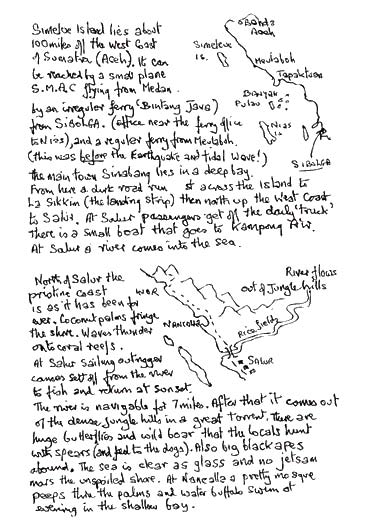 Simelue Island lies about
100 miles off the West Coast
of Sumatra (Aceh). It can
be reached by a small plane
S.M.A.C flying from Medan.
by an irregular ferry (Bintang Jaya)
from SIBOLGA. (office near the ferry office
to Nias), and a regular ferry from Meulaboh.
(this was before the Earthquake and tidal Wave!)
the main town Sinabang lies in a deep bay.
From here a dirt road run st across the Island to
La Sikkim (the landing strip) then north up the West Coast
to Salur. At Salur passengers get off the daily 'truck'
There is a small boat that goes to Kampong AIR.
At Salur a river comes into the sea.
Banda
Aceh
Simelue
is.
Meulaboh
Tapaktuan
Banyak
Pulau
Nias
is
SIBOLGA
North of Salur the
pristine coast
is as it has been for
ever. Coconut palms fringe
the shore. Waves thunder
onto coral reefs.
At Salur sailing outrigger
canoes set off from the river
to fish and return at sunset.
The river is navigable for 7 miles. After that it comes out
of the dense jungle hills in a great torrent. There are
huge butterflies and wild boar that the locals hunt
with spears (and fed to the dogs). Also big black apes
abound. The sea is clear as glass and no jetsam
mars the unspoiled shore. At Nancalla a pretty mosque
peeps thru the palms and water buffalo swim at
evening in the shallow bay.
River flows
out of Jungle hills
Rice fields
SALUR